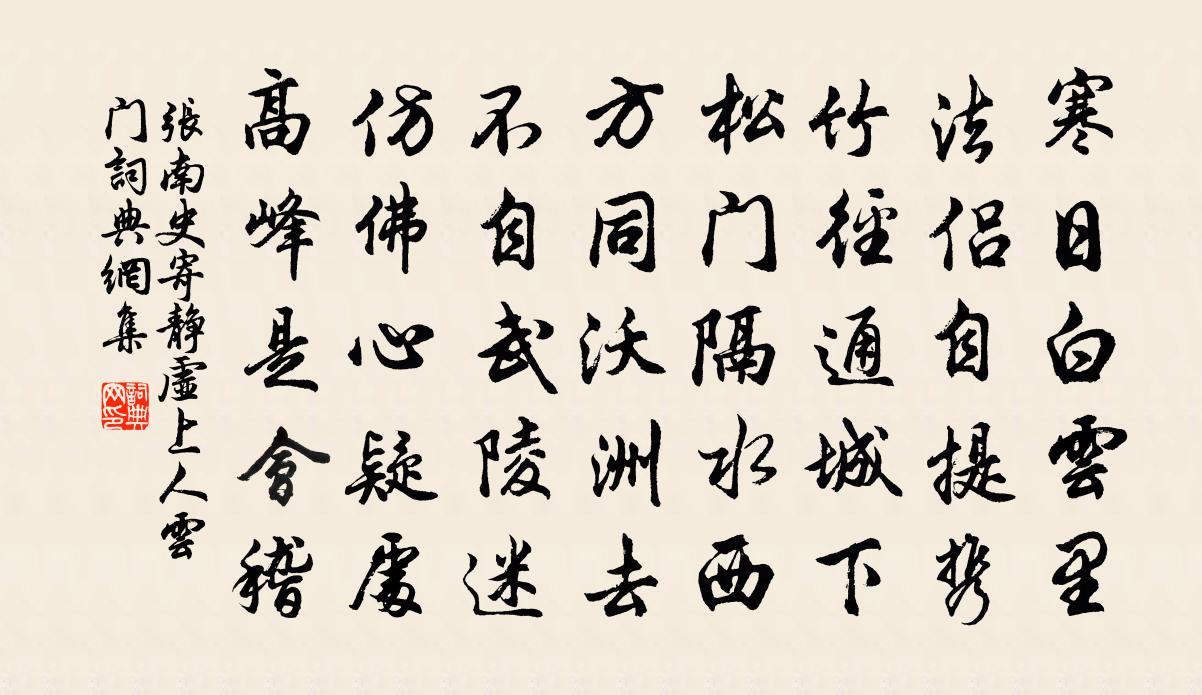 寒日白雲里
法侣自提携
竹徑通城下
松门隔水西
方同沃洲去
不自武陵迷
仿佛心疑處
高峰是會稽
張南史寄静虛上人雲
门詞典網集
詞典
网印